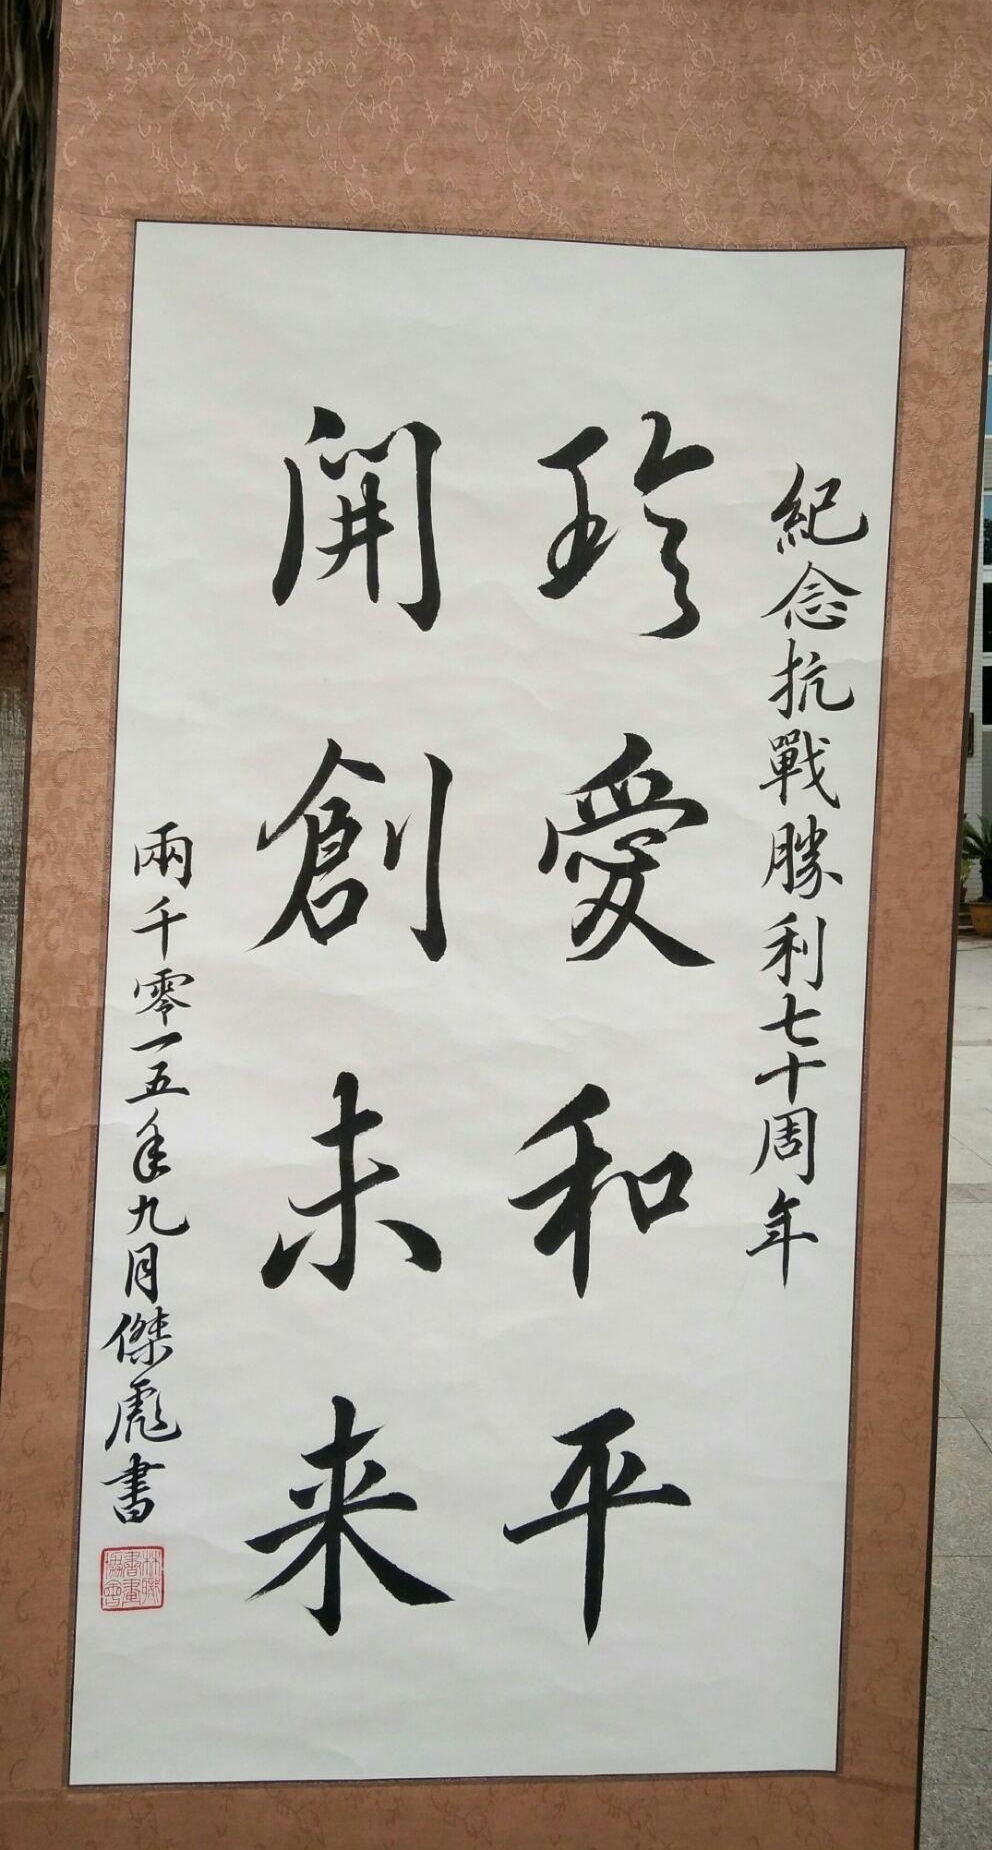 紀念抗戰勝利七十周年
珍愛和平
開創未来
兩千零一五年九月傑彪書